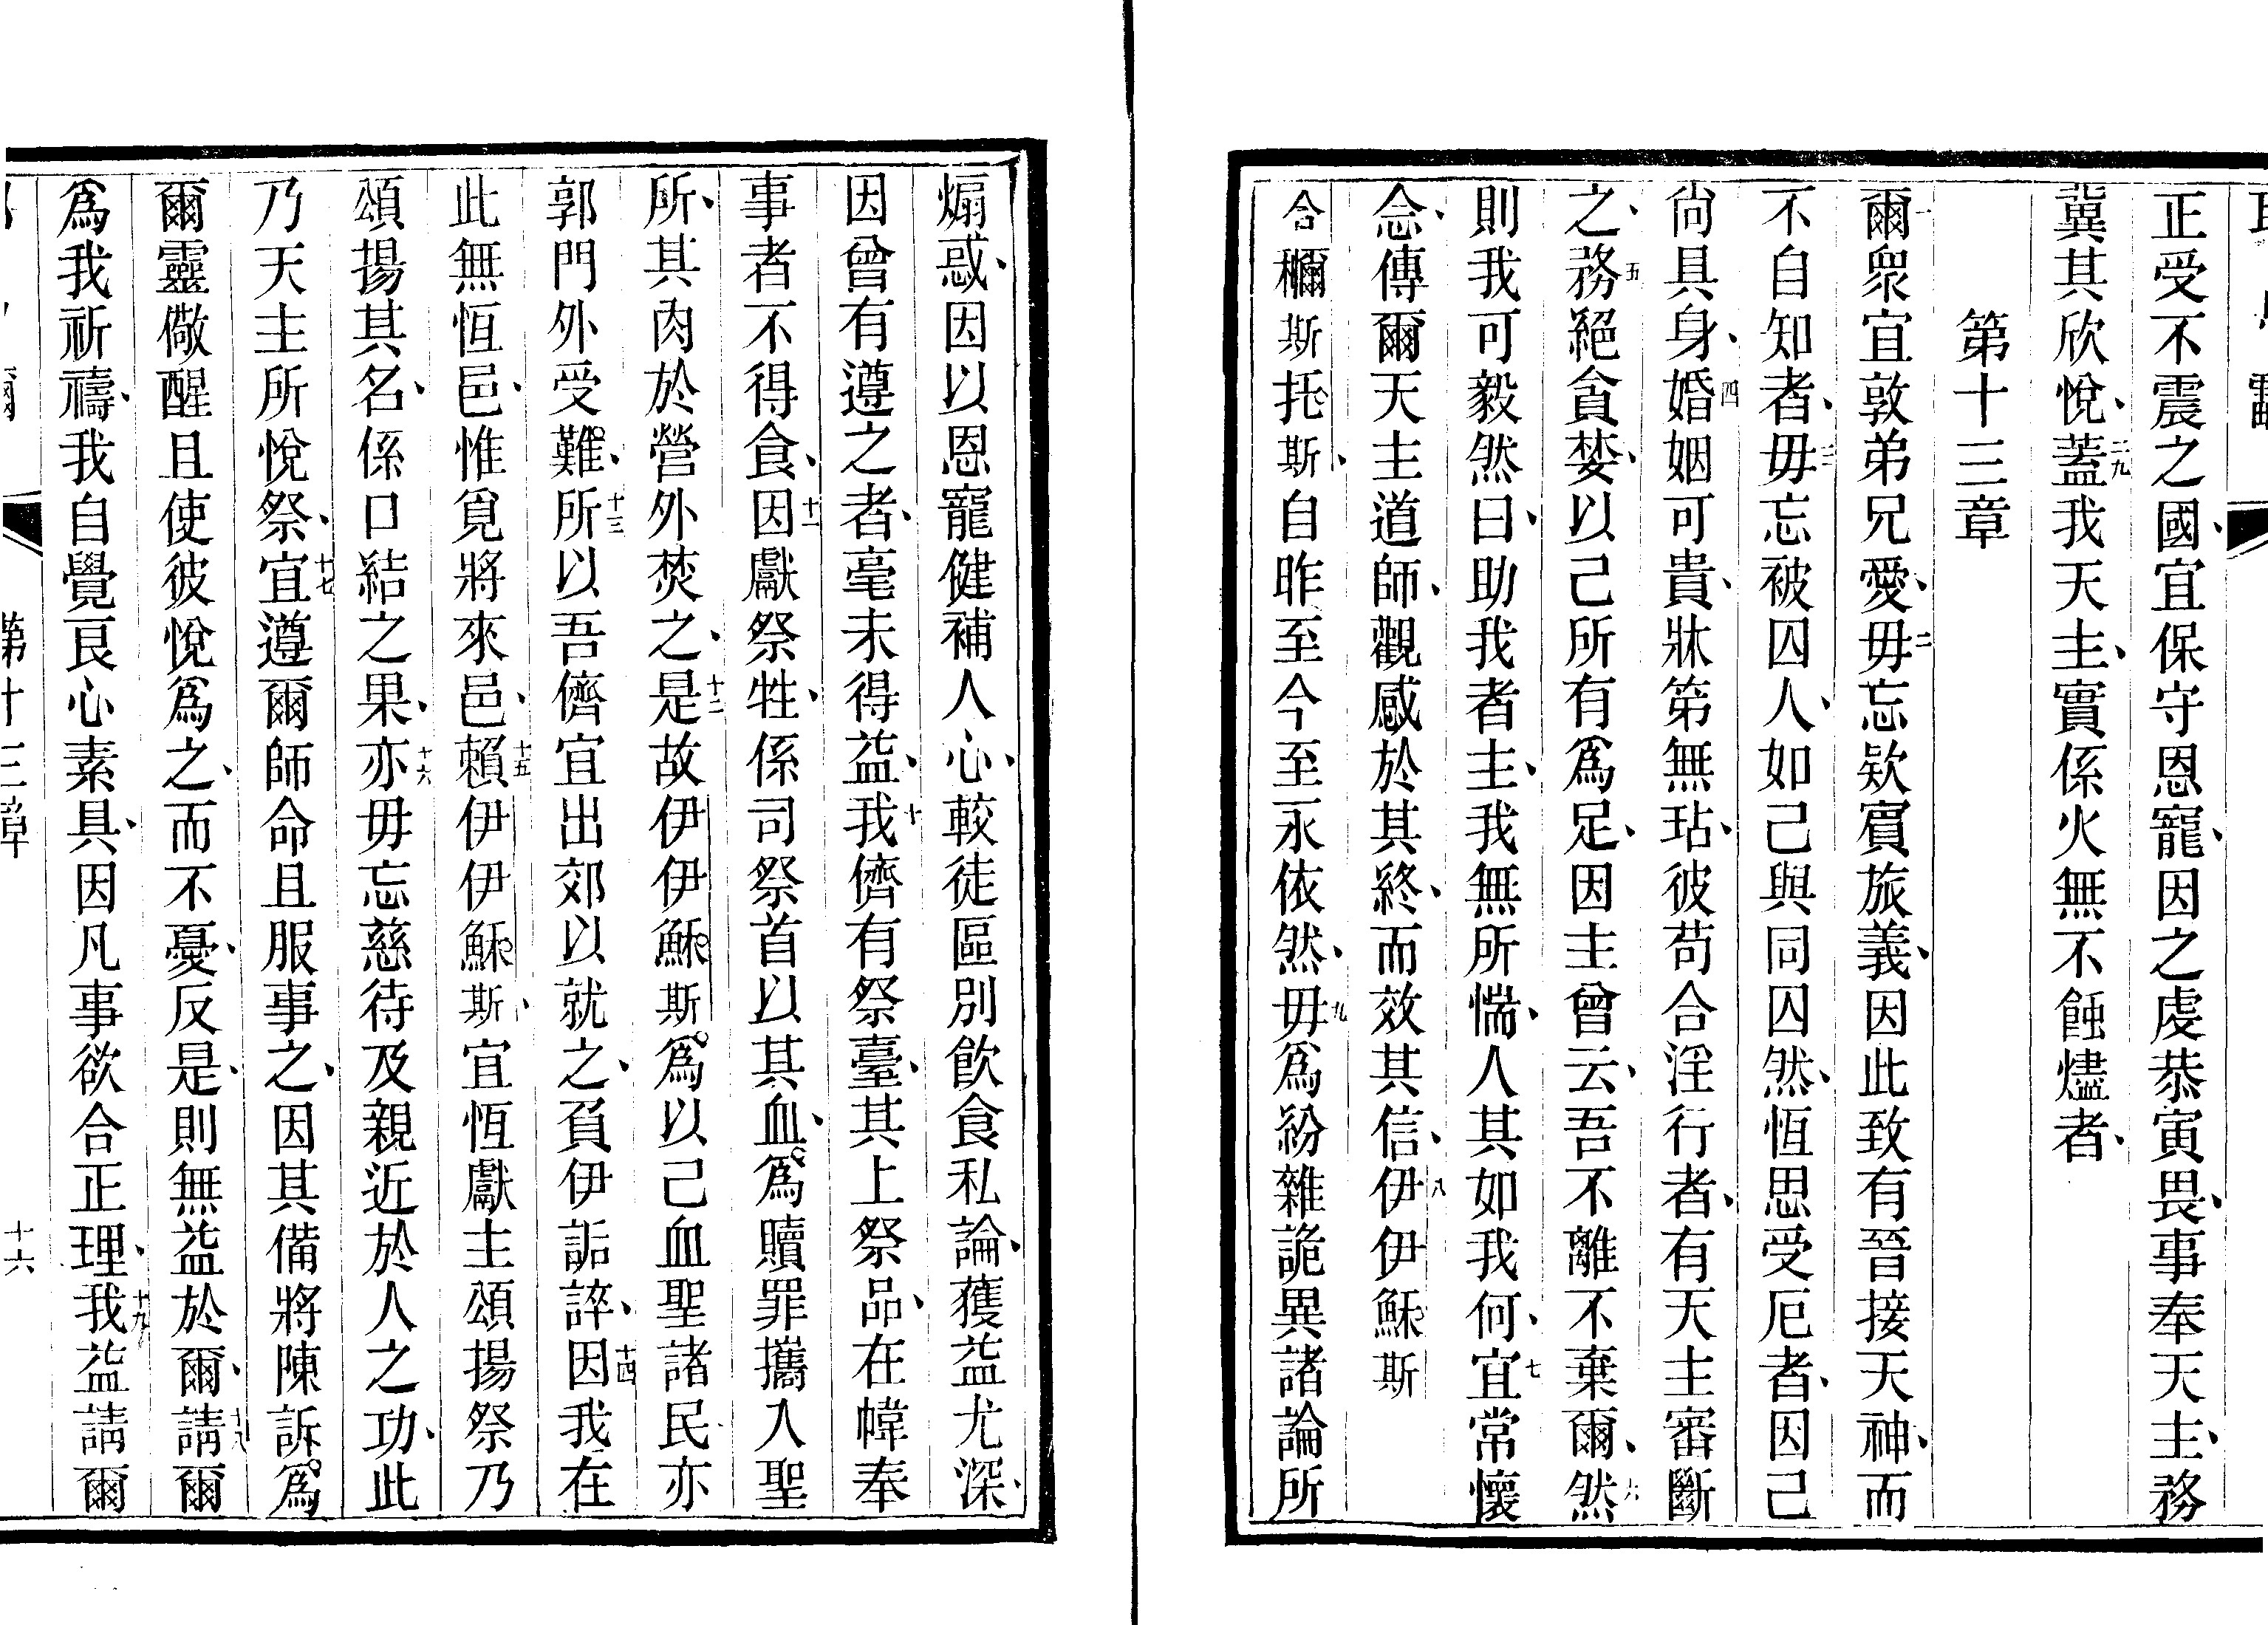 正受不震之國、宜保守恩寵、因之虔恭寅畏、事奉天主、務
冀其欣悅、二九蓋我天主、實係火無不蝕燼者、
第十三章
一爾眾宜敦弟兄愛、二毋忘欵賓旅義、因此致有晉接天神、而
不自知者、三毋忘被囚人、如己與同囚然、恆思受厄者、因己
尙具身、四婚姻可貴、牀笫無玷、彼苟合淫行者、有天主審斷
之、五務絕貪婪、以己所有爲足、因主曾云、吾不離不棄爾、六然
則我可毅然曰、助我者主、我無所惴、人其如我何、七宜常懷
念、傳爾天主道師、觀感於其終、而效其信、八伊伊穌斯
合穪斯托斯、自昨至今至永依然、九毋爲紛雜詭異諸論所
煽惑、因以恩寵健補人心、較徒區別飲食私論、獲益尤深、
因曾有遵之者、毫未得益、十我儕有祭臺、其上祭品、在幃奉
事者不得食、十一因獻祭牲、係司祭首以其血、爲贖罪攜入聖
所、其肉於營外焚之、十二是故伊伊穌斯爲以己血聖諸民、亦
郭門外受難、十三所以吾儕宜出郊以就之、負伊詬誶、十四因我在
此無恆邑、惟覓將來邑、十五賴伊伊穌斯、宜恆獻主頌揚祭、乃
頌揚其名、係口結之果、十六亦毋忘慈待及親近於人之功、此
乃天主所悅祭、十七宜遵爾師命且服事之、因其備將陳訴爲
爾靈儆醒、且使彼悅爲之、而不憂、反是、則無益於爾、十八請爾
爲我祈禱、我自覺良心素具、因凡事欲合正理、十九我益請爾
第十三章
十六